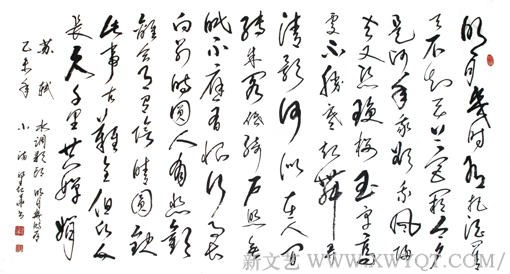 明月幾时有把酒问青
天不知天上宫阙今夕
是何年我欲乘风归
去又恐琼楼玉宇高
处不胜寒起舞弄
清影何似在人间
转朱阁低绮户照无
眠不应有恨何事长
向别时圆人有悲欢
离合月有阴晴圆缺
此事古难全但愿人
长久千里共婵娟
苏轼 水调歌头 明月幾时有
乙未年 小满 书
新文艺 WWW.XWYQ7.COM